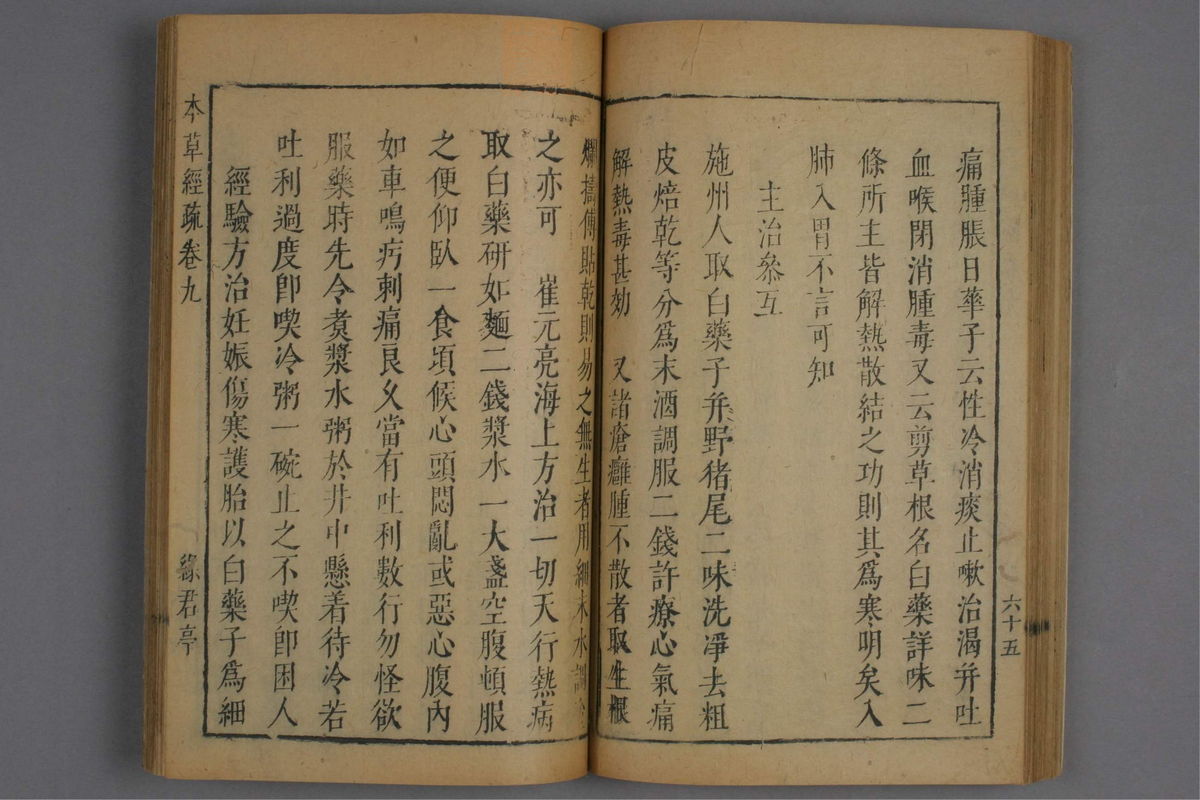 六十五
痛腫脹日華子云性冷消痰止嗽治渴并吐
血喉閉消腫毒又云剪草根名白藥詳味二
條所主皆解熱散結之功則其爲寒明矣入
肺入胃不言可知
主治叅互
施州人取白藥子并野猪尾二味洗淨去粗
皮焙乾等分爲末酒調服二錢許療心氣痛
解熱毒甚効 又諸瘡癰腫不散者取生根
爛擣傅貼乾則易之無生者用細末水調
之亦可 崔元亮海上方治一切天行熱病
取白藥研如麵二錢漿水一大盞空腹頓服
之便仰臥一食頃候心頭悶亂或惡心腹內
如車鳴疞刺痛良久當有吐利數行勿怪欲
服藥時先令煑漿水粥於井中懸着待冷若
吐利過度卽喫冷粥一碗止之不喫卽困人
經驗方治妊娠傷寒護胎以白藥子爲細
本草經疏卷九
綠君亭